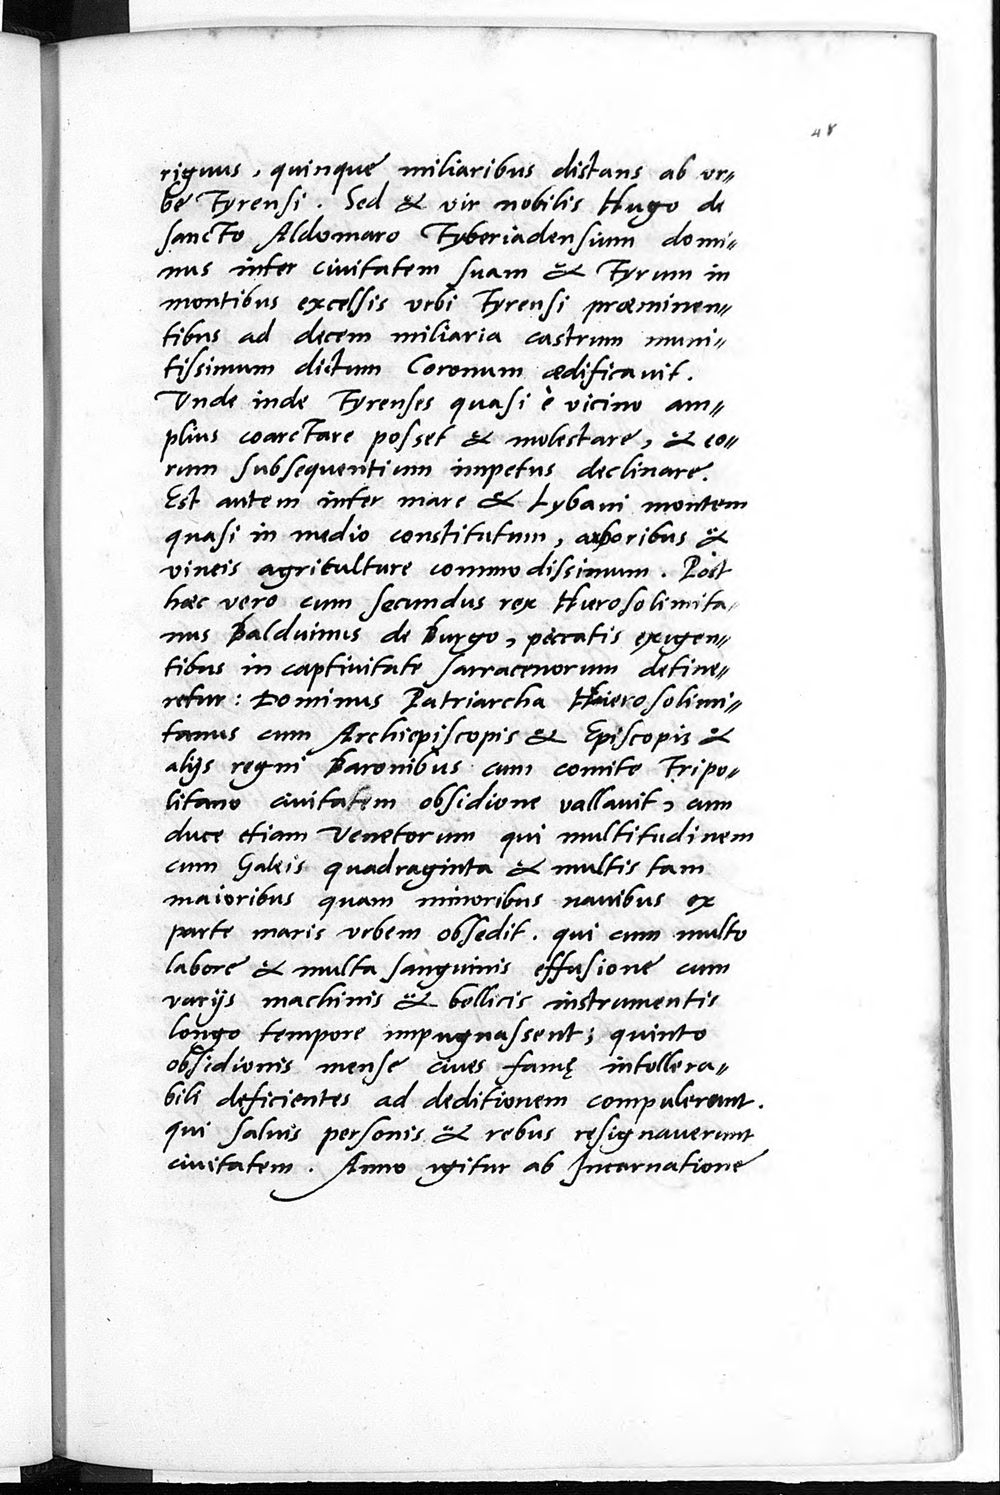 48
riguus, quinque miliaribus distans ab vr〃
be Tyrensi. Sed & vir nobilis Hugo de
sancto Aldomaro Tyberiadensium domi〃
nus inter ciuitatem suam & Tyrum in
montibus excelsis vrbi Tyrensi præminen〃
tibus ad decem miliaria castrum muni〃
tissimum dictum Coronum ædificauit.
Vnde inde Tyrenses quasi è vicino am〃
plius coarctare posset & molestare, & eo〃
rum subsequentium impetus declinare.
Est autem inter mare & Lybani montem
quasi in medio constitutum, arboribus &
vineis agriculture commodissimum. Post
hæc vero cum secundus rex Hierosolimita〃
nus Balduinus de Burgo, peccatis exigen〃
tibus in captiuitate sarracenorum detine〃
retur: Dominus Patriarcha Hierosolimi〃
tanus cum Archiepiscopis & Episcopis &
alijs regni Baronibus cum comite Tripo〃
litano ciuitatem obsidione vallauit, cum
duce etiam Venetorum qui multitudinem
cum Galeis quadraginta & multis tam
maioribus quam minoribus nauibus ex
parte maris vrbem obsedit. qui cum multo
labore & multa sanguinis effusione cum
varijs machinis & bellicis instrumentis
longo tempore impugnassent; quinto
obsidionis mense ciues famę intollera〃
bili deficientes ad deditionem compulerunt.
qui saluis personis & rebus resignauerunt
ciuitatem. Anno igitur ab Incarnatione